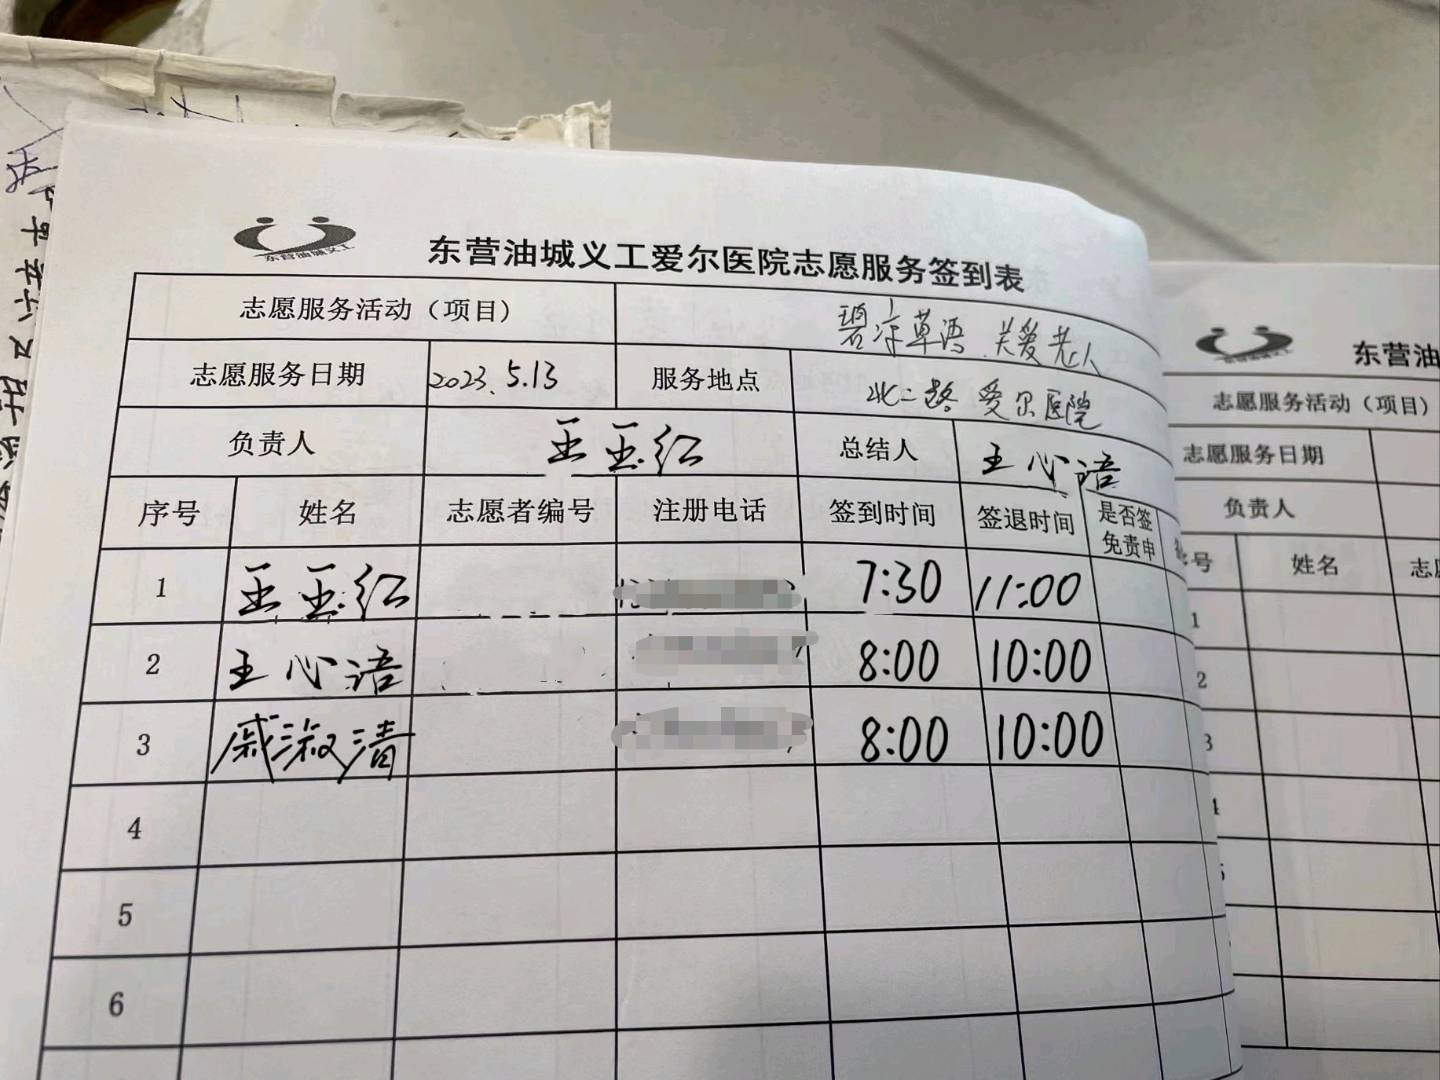 东营油城义工
东营油城义工爱尔医院志愿服务签到表
志愿服务活动（项目） 关爱老人
志愿服务日期 2023.5.13 服务地点 北二路 爱尔医院
负责人 王玉红 总结人 王心语
序号 姓名 志愿者编号 注册电话 签到时间 签退时间 是否签
免责申
1 王玉红 7:30 11:00
2 王心语 8:00 10:00
3 戚淑清 8:00 10:00
4
5
6
东营油
志愿服务活动（项目）
志愿服务日期
负责人
号 姓名 志愿
1
2
3